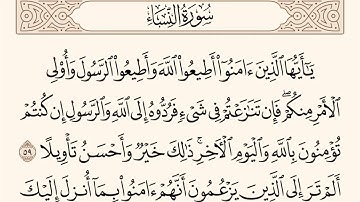 سُورَةُ النِّسَاءِ
يَٰٓأَيُّهَا ٱلَّذِينَ ءَامَنُوٓا۟ أَطِيعُوا۟ ٱللَّهَ وَأَطِيعُوا۟ ٱلرَّسُولَ وَأُو۟لِى
ٱلْأَمْرِ مِنكُمْ ۖ فَإِن تَنَٰزَعْتُمْ فِى شَىْءٍ فَرُدُّوهُ إِلَى ٱللَّهِ وَٱلرَّسُولِ إِن كُنتُمْ
تُؤْمِنُونَ بِٱللَّهِ وَٱلْيَوْمِ ٱلْءَاخِرِ ۚ ذَٰلِكَ خَيْرٌ وَأَحْسَنُ تَأْوِيلًا ٥٩
أَلَمْ تَرَ إِلَى ٱلَّذِينَ يَزْعُمُونَ أَنَّهُمْ ءَامَنُوا۟ بِمَآ أُنزِلَ إِلَيْكَ